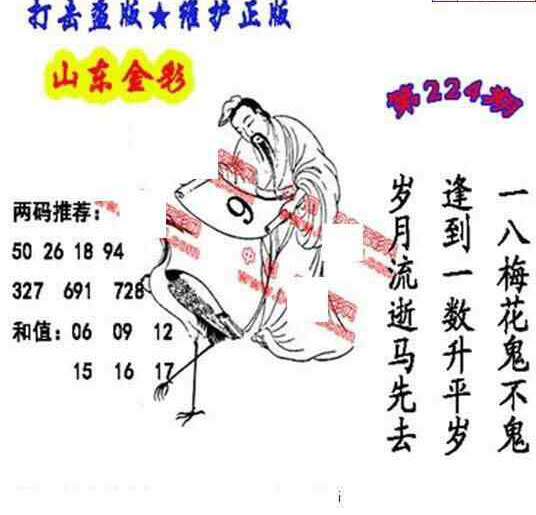 打击盗版★维护正版
山东金彩
第224期
两码推荐：
50 26 18 94
327 691 728
和值：06 09 12
15 16 17
9
一八梅花鬼不鬼
逢到一数升平岁
岁月流逝马先去